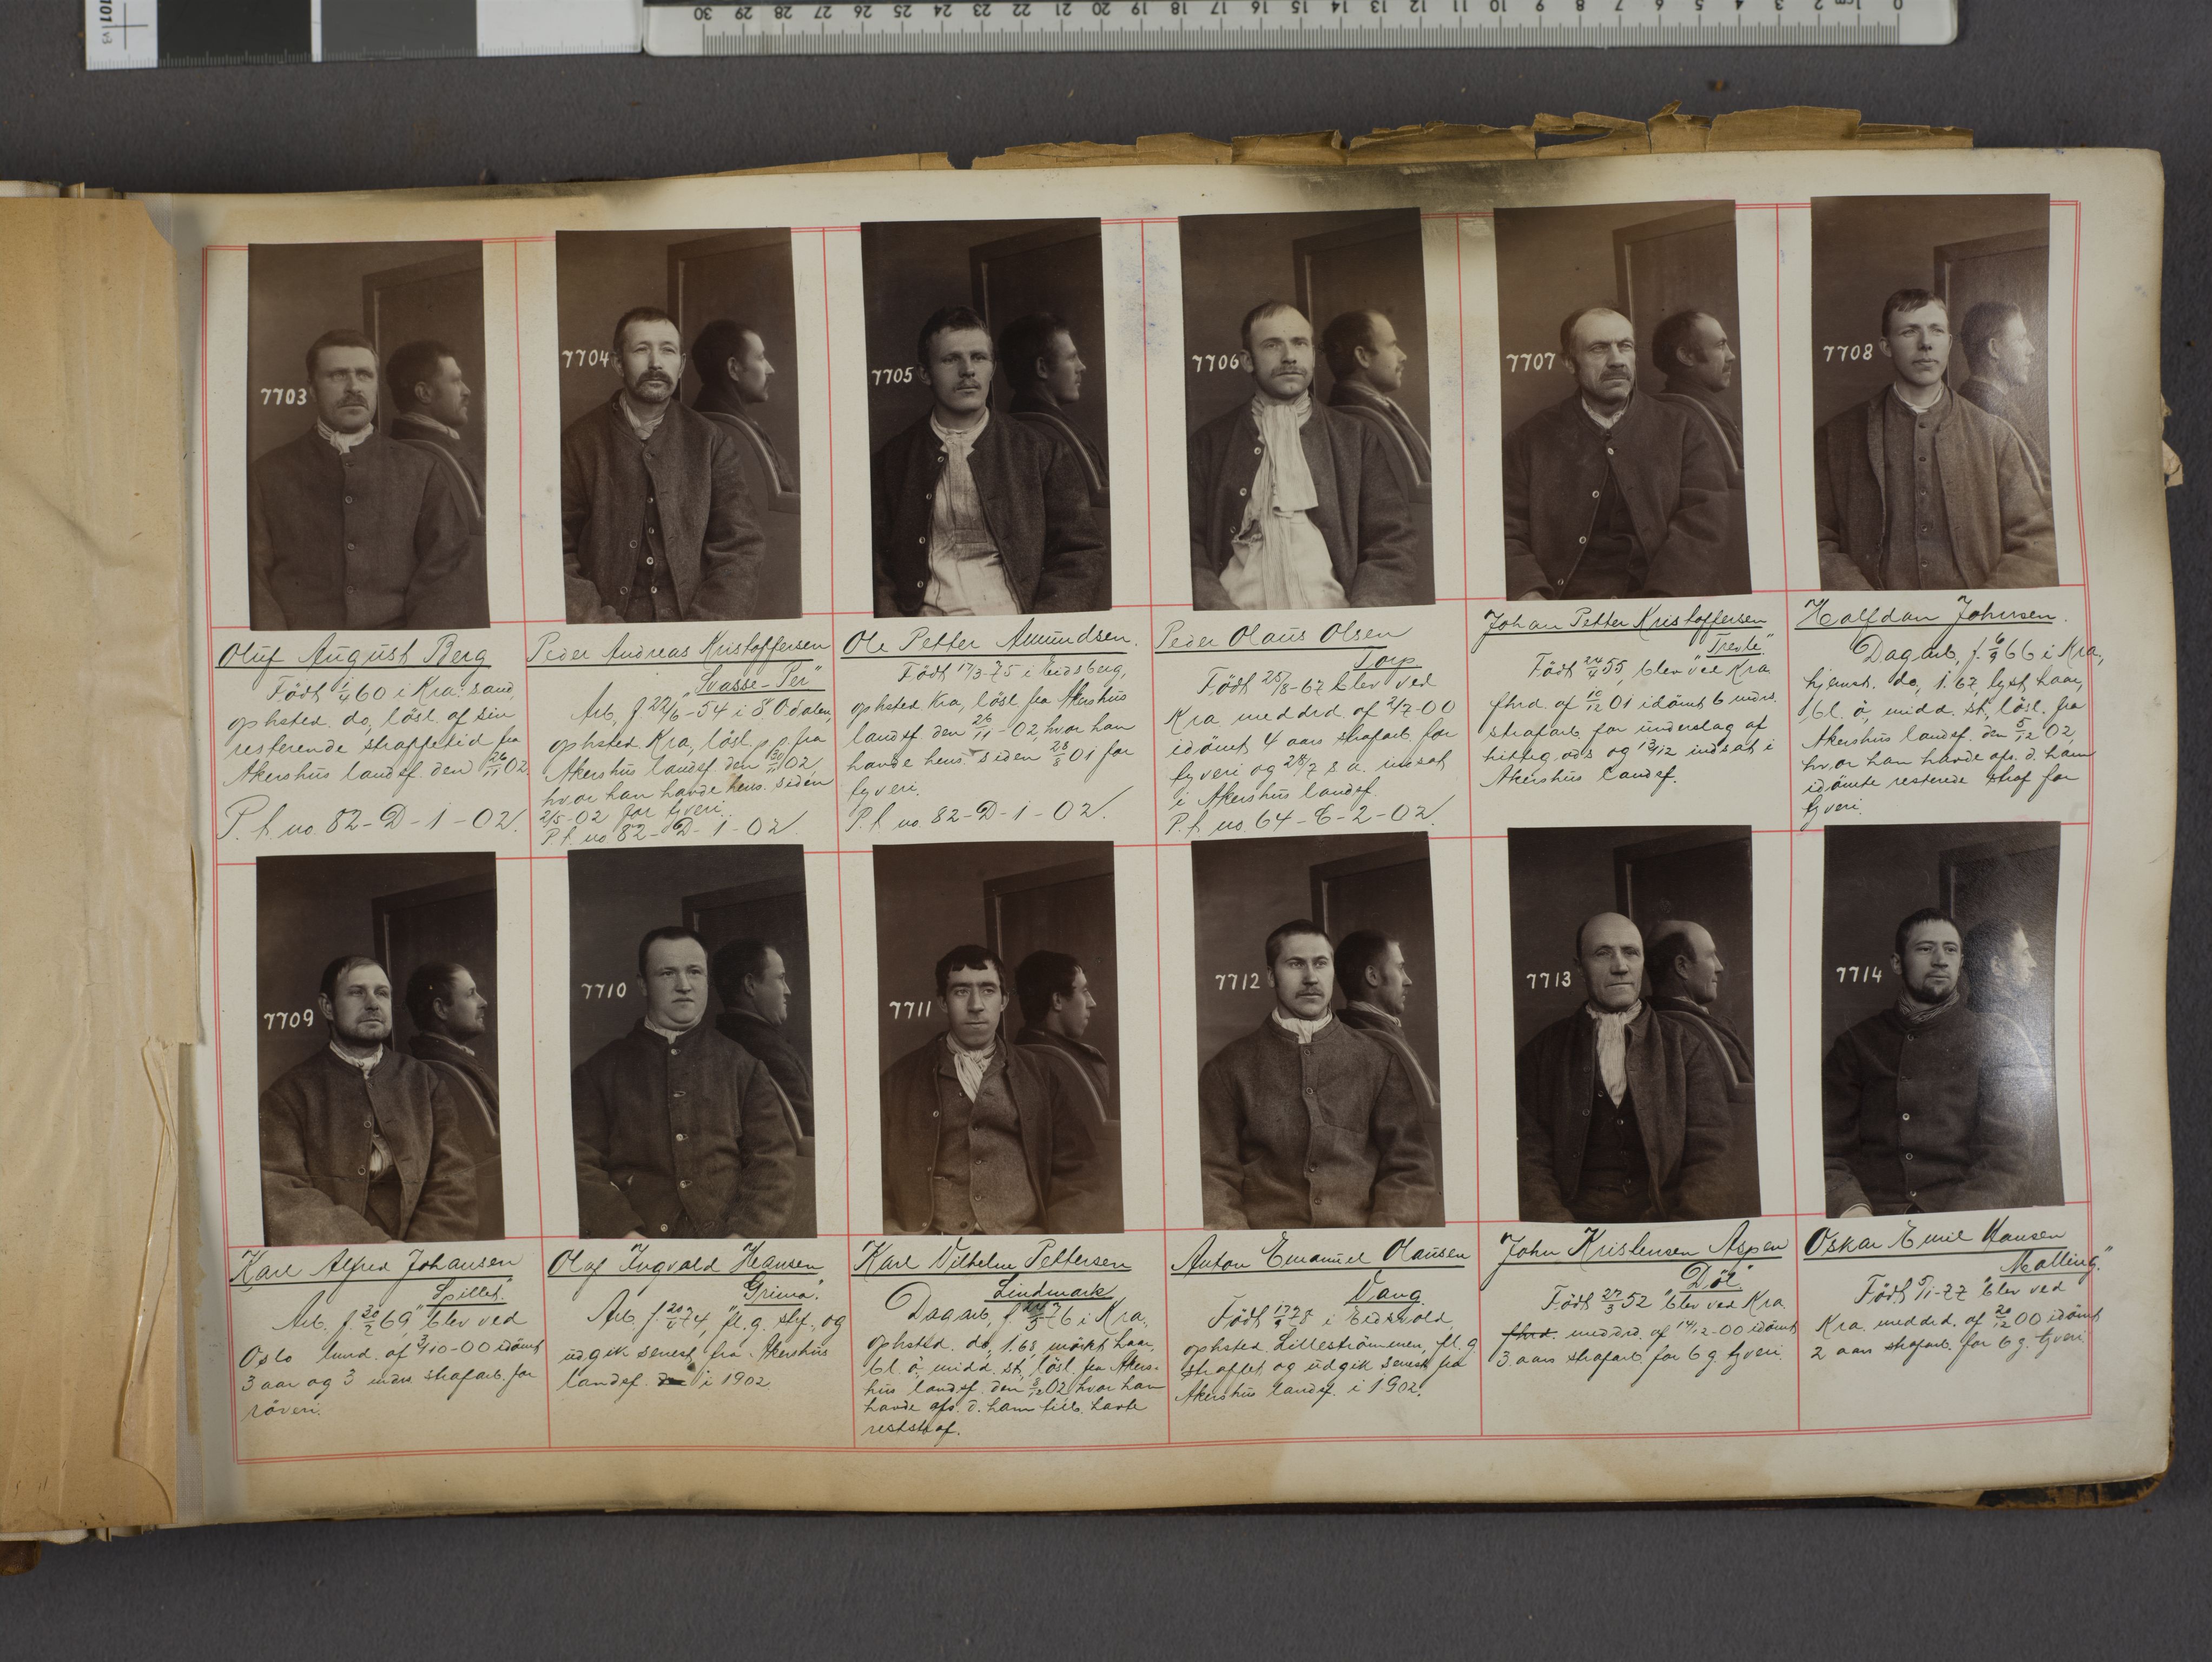 101 v3
30 29 28 27 26 25 24 23 22 21 20 19 18 17 16 15 14 13 12 11 10 9 8 7 6 5 4 3 2 1 cm 0
7703
7704
7705
7706
7707
7708
Oluf August Berg
Född 1/4 60 i Kra. sand,
ophsted. do, lösl. af sin
resterende straffetid fra
Akershus landsf. den 26/11 02.
P. f. no. 82-D-1-02.
Peder Andreas Kristoffersen
"Svasse-Per"
Arb, f. 22/6-54 i S. Odalen,
ophsted. Kra, lösl. p. p. fra
Akershus landsf. den 30/11 02
hvor han havde hens. siden
2/5-02 for tyveri.
P. f. no. 82-D-1-02
Ole Petter Amundsen.
Född 17/3-75 i Eidsberg,
ophsted Kra, lösl fra Akershus
landsf den 26/11-02, hvor han
havde hens. siden 01 for
tyveri.
P. f. no 82-D-1-02.
Peder Olaus Olsen
Torp
Född 25/8-67 blev ved
Kra. meddrd. af 2/7-00
idömt 4 aars strafarb. for
tyveri og s. a. insat
i Akershus landsf.
P. f. no. 64-E-2-02.
Johan Petter Kristoffersen
"Trevle"
Född 24/4 55, blev ved Kra
fhrd. af 10/12 01 idömt 6 mdrs.
strafarb. for underslag af
hitteg ods og 13/12 indsat i
Akershus landsf.
Halfdan Johnsen.
Dagarb, f. 6/9 66 i Kra,
hjemst. do, 1.67, lyst haar,
bl. ö, midd. st., lösl. fra
Akershus landsf. den 5/12 02,
hvor han havde afs. d. ham
idömte resterede straf for
tyveri.
7709
7710
7711
7712
7713
7714
Karl Alfred Johansen
"Spillet"
Arb. f. 20/2 69, blev ved
Oslo lavrd. af 3/10-00 idömt
3 aar og 3 mdrs strafarb. for
röveri.
Olaf Ingvald Hansen
"Grima"
Arb. f. 74, fl. g. stf., og
udgik senest fra Akershus
landsf. i 1902
Karl Vilhelm Pettersen
Lindmark
Dagarb, f. 76 i Kra.
ophsted. do, 1.68, mörkt haar,
bl. ö, midd. st, lösl. fra Akers-
hus landsf. den 3/12 02, hvor han
havde afs. d. ham till. havte
reststraf.
Anton Emanuel Olausen
Vang
Född 17/9 78 i Eidsvold,
ophsted. Lilleströmmen, fl. g
straffet og udgik senest fra
Akershus landsf. i 1902.
John Kristensen Aspen
"Döl"
Född 27/3 52 blev ved Kra
fhrd. meddrd. af 14/12-00 idömt
3 aars strafarb. for 6 g. tyveri.
Oskar Emil Hansen
"Malling"
Född 5/1-77 blev ved
Kra. meddrd. af 20/12 00 idömt
2 aars strafarb. for 6 g. tyveri